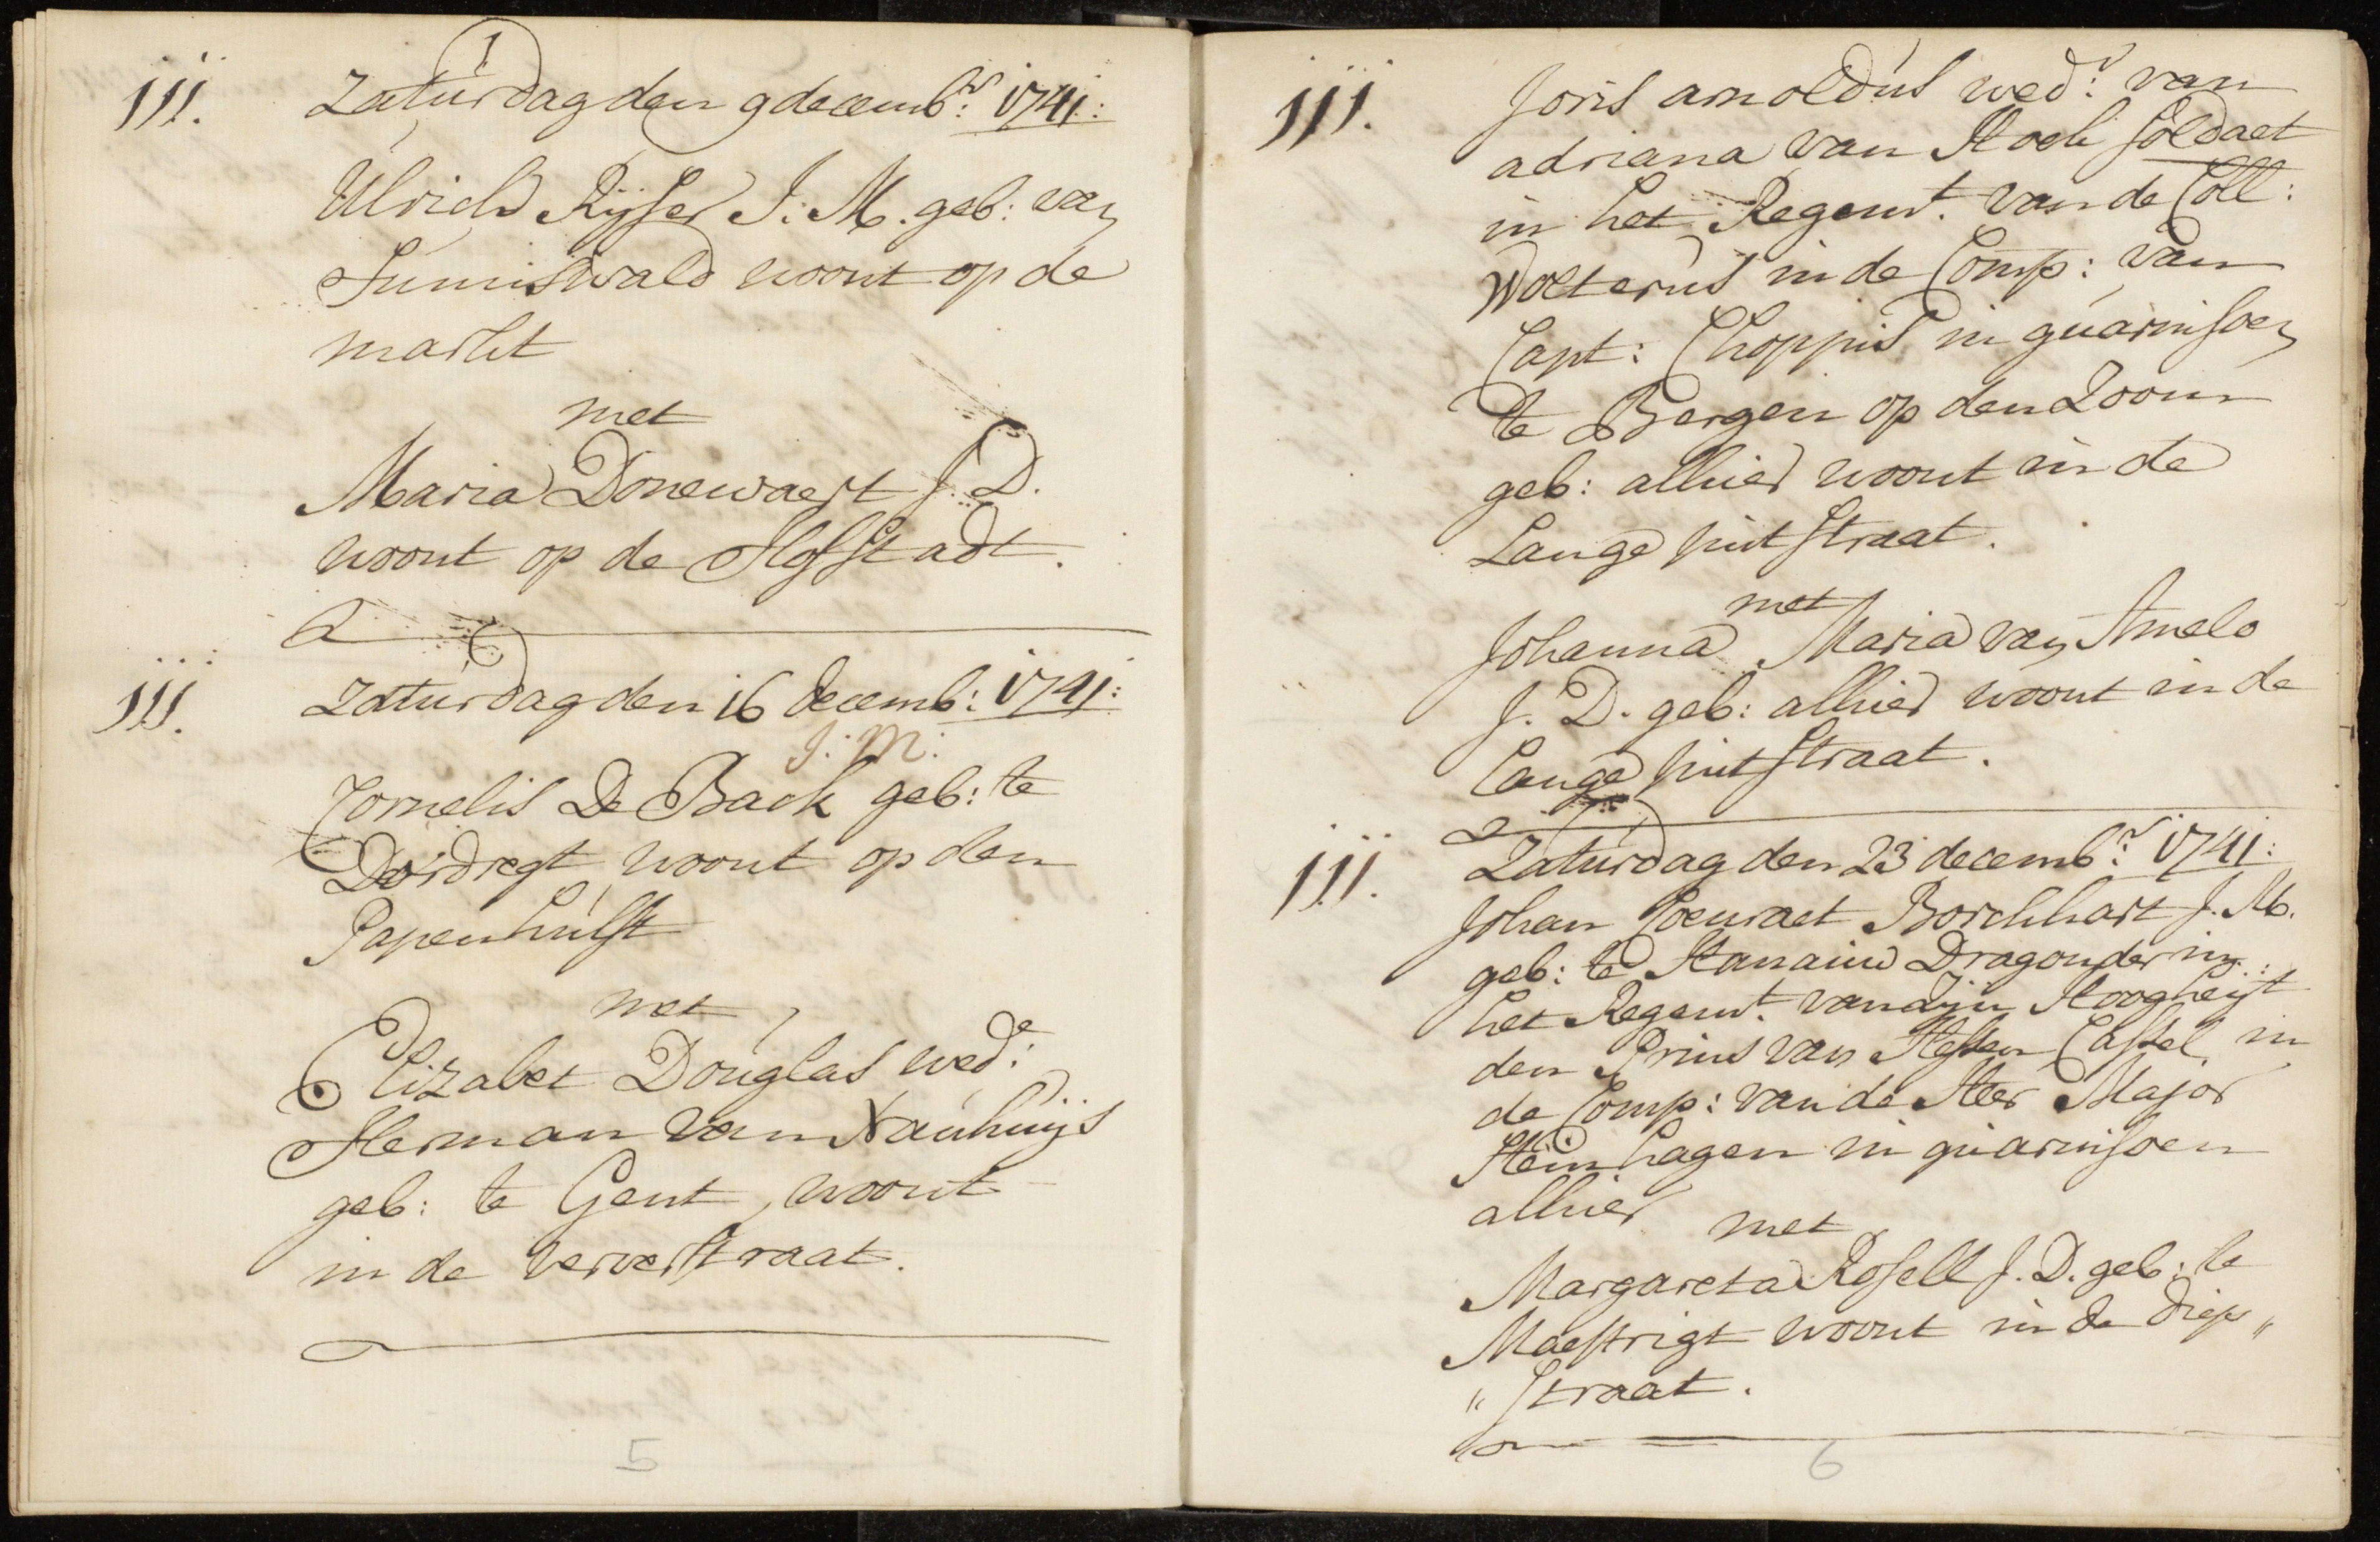 1
jjj. Zaturdag den 9 decemb:r 1741:
Ulrich Rijser J: M. geb: van
Sumiswald woont op de
markt
met
Maria Donewaert J. D.
woont op de Hofstadt.
jjj. Zaturdag den 16 decemb: 1741:
J: M:
Cornelis De Back geb: te
Dordregt woont op den
Papenhulst
met
Elizabet Douglas wed:e
Herman van Nauhuijs
geb: te Gent, woont
in de ververstraat.
5
jjj. Joris arnoldus wed:r van
adriana van Hoek soldaet
in het Regemt. van de Coll:
Wolterus in de Comp: van
Capt: Choppis in guarnisoen
te Bergen op den Zoom
geb: alhier woont in de
Lange putstraat.
met
Johanna Maria van Amelo
J. D. geb: alhier woont in de
Lange putstraat.
jjj. Zaturdag den 23 decemb:r 1741:
Johan Coenraet Borchhart J. M.
geb: te Hanauw Dragonder in
het Regemt. van Zijn Hoogheijt
den Prins van Hessen Cassel in
de Comp: van de Heer Major
Steinhagen in guarnisoen
alhier
met
Margareta Rosell J. D. geb: te
Maestrigt woont in de diepe„
„straat.
6